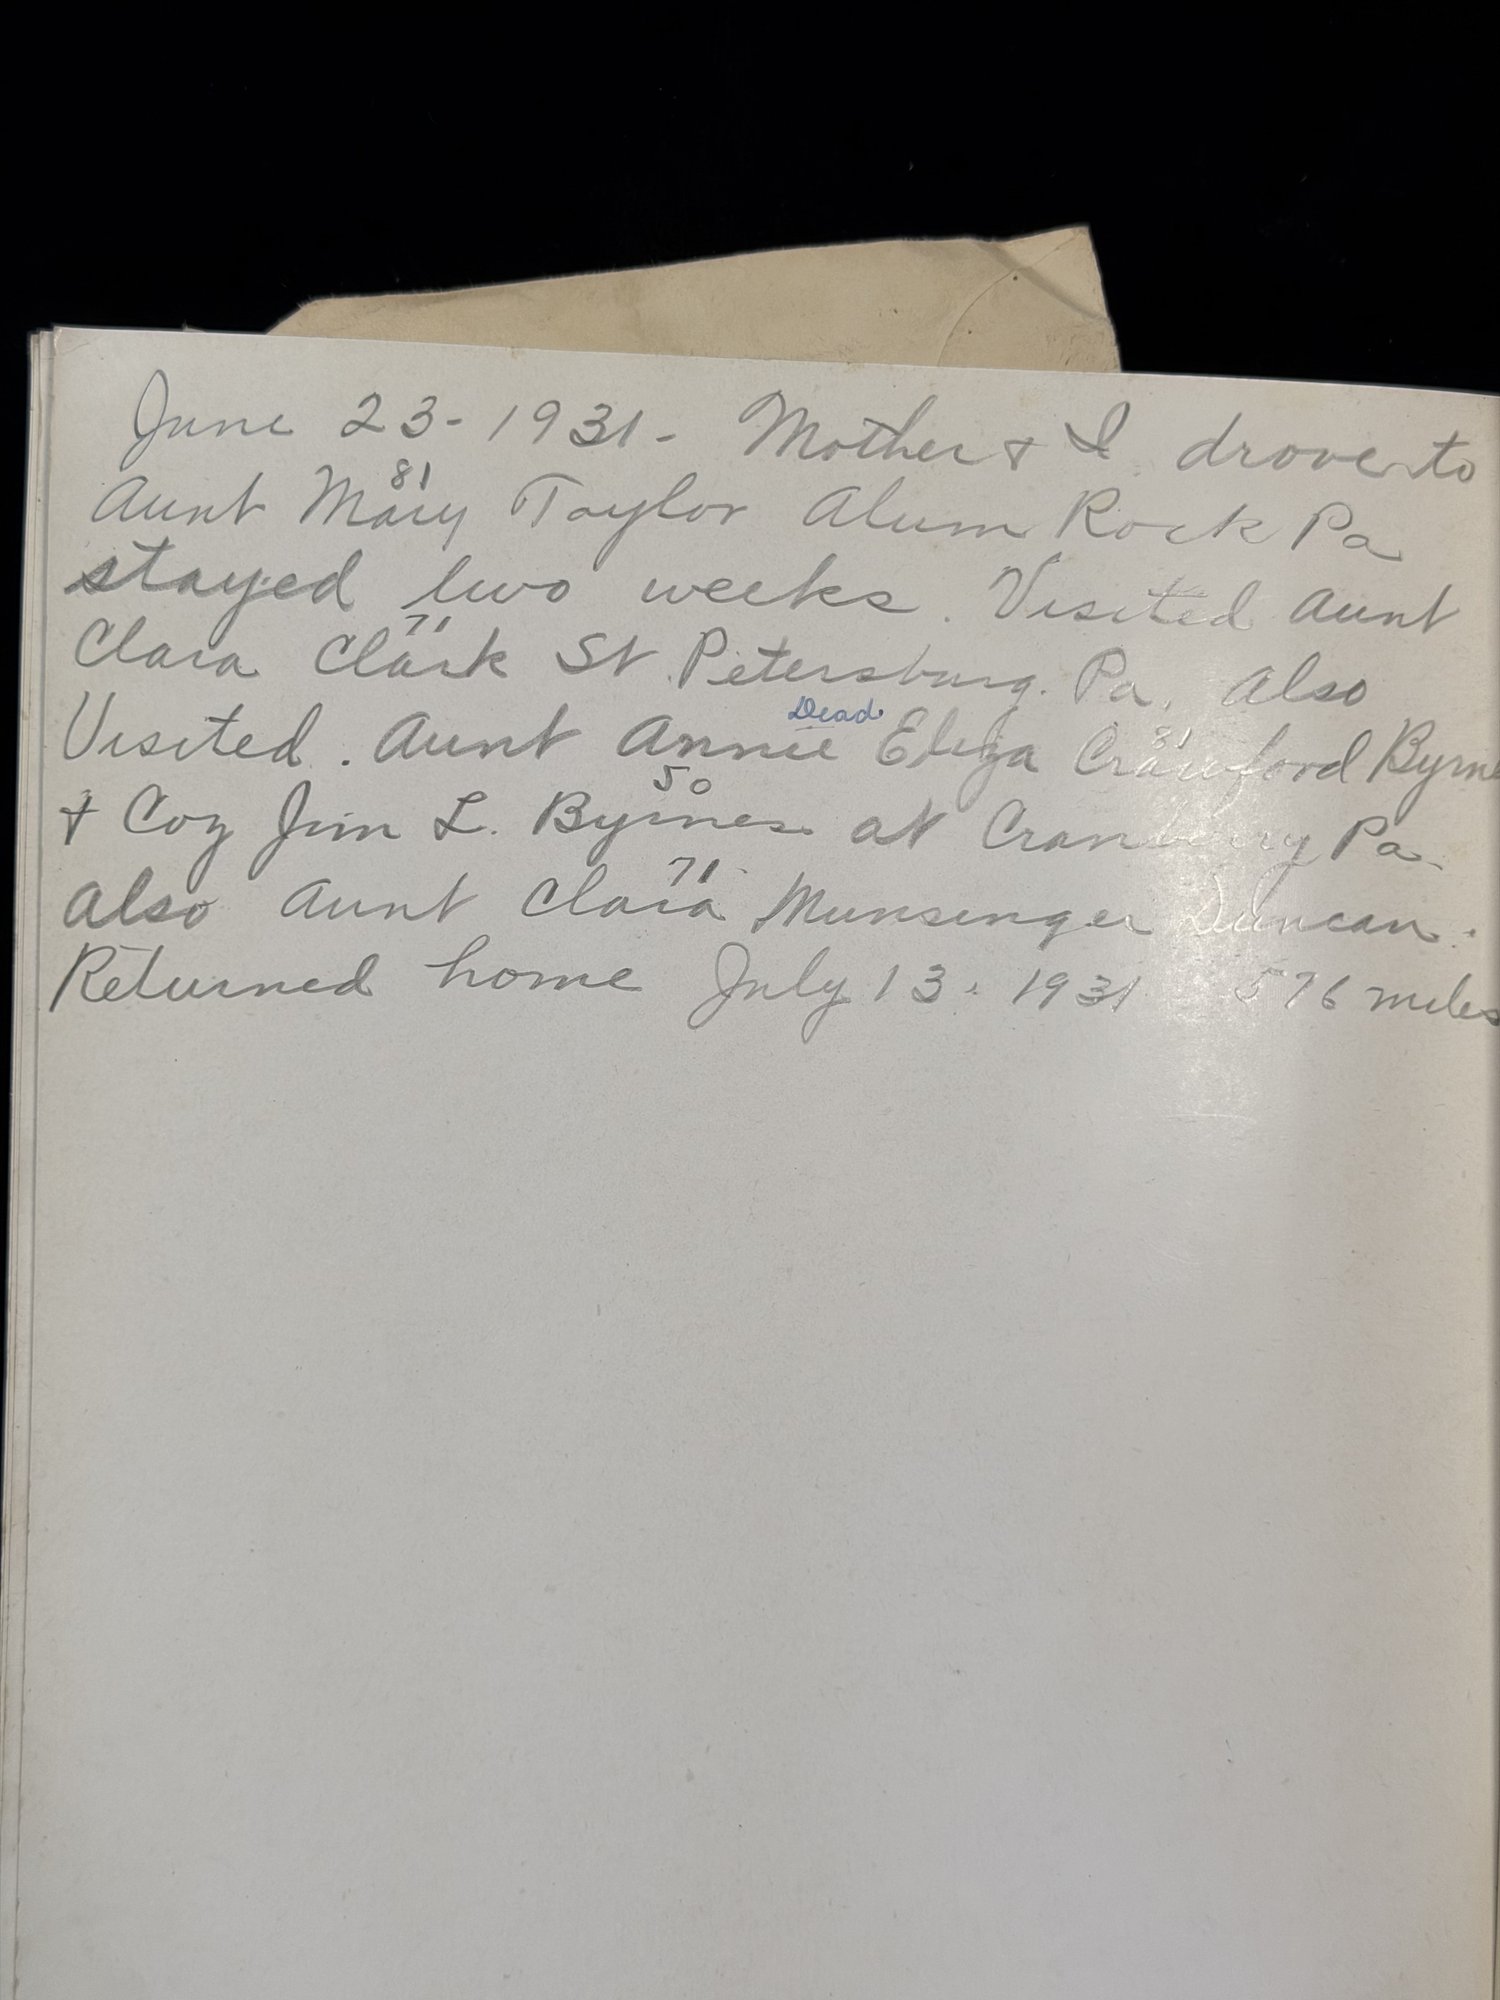 June 23 - 1931 - Mother & I drove to
81
Aunt Mary Taylor Alum Rock Pa
stayed two weeks. Visited Aunt
71
Clara Clark St. Petersburg. Pa. Also
Dead
Visited. Aunt Annie Eliza Crawford Byrne
81
50
& Coz Jim L. Byrnes at Cranberry Pa.
71
Also Aunt Clara Munsinger Duncan.
Returned home July 13. 1931 576 miles